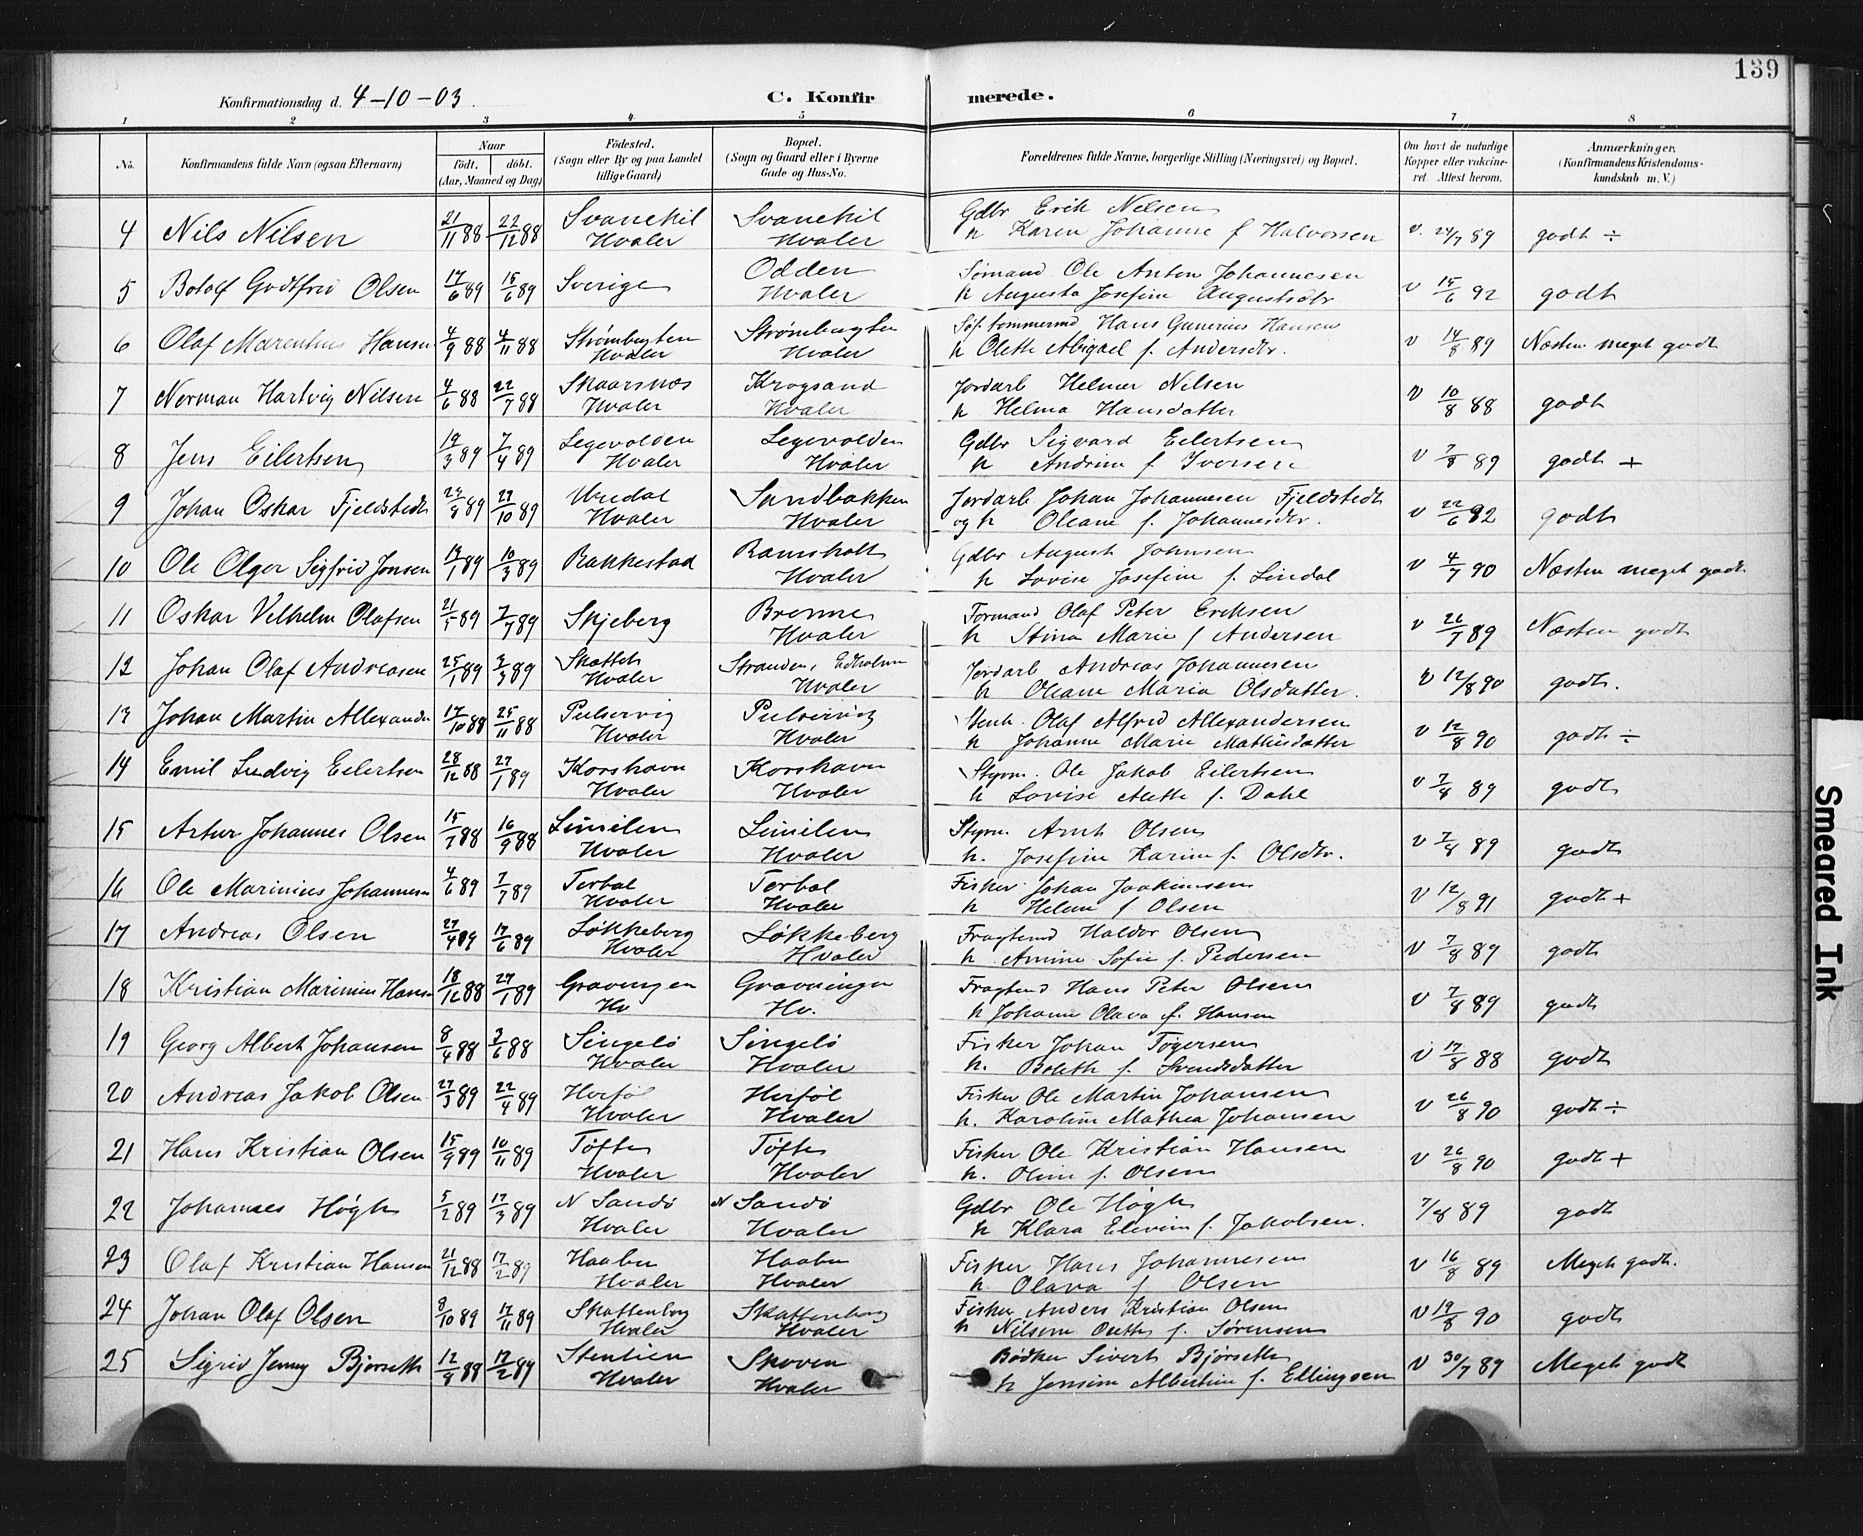 139
Konfirmationsdag d. 4-10-03. C. Konfirmerede.
1 2 3 4 5 6 7 8
No. Konfirmandens fulde Navn (ogsaa Efternavn) Naar födt. döbt. (Aar, Maaned og Dag) Födested. (Sogn eller By og paa Landet tillige Gaard) Bopæl. (Sogn og Gaard eller i Byerne Gade og Hus-No. Forældrenes fulde Navne, borgerlige Stilling (Næringsvei) og Bopæl. Om havt de naturlige Kopper eller vakcineret Attest herom. Anmærkninger. (Konfirmandens Kristendomskundskab m. V.)
4 Nils Nilsen 21/11 88 22/12 88 Svanekil Hvaler Svanekil Hvaler Gdbr Erik Nelsen h Karen Johanne f Halvorsen v. 24/7 89 godt ÷
5 Botolf Godtfred Olsen 17/6 89 15/6 89 Sverige Odden Hvaler Sømand Ole Anton Johannesen h Augusta Josefine Augustsdtr v 15/6 92 godt
6 Olaf Marentius Hansen 4/9 88 4/11 88 Strømbugten Hvaler Strømbugten Hvaler Søf. tømmermd Hans Gunerius Hansen h Olette Abigael f. Andersdtr. v 14/8 89 Næsten meget godt
7 Norman Hartvig Nilsen 4/6 88 22/7 88 Skaarsnes Hvaler Krogsand Hvaler Jordarb Helmer Nilsen h Helma Hansdatter v 10/8 88 godt
8 Jens Eilertsen 19/3 89 7/4 89 Legevolden Hvaler Legevolden Hvaler Gdbr Sigvard Eilertsen h Andrine f Iversen v 7/8 89 godt +
9 Johan Oskar Fjeldstedt 24/8 89 27/10 89 Urdal Hvaler Sandbakken Hvaler Jordarb Johan Johannesen Fjeldstedt og h Oleane f. Johannesdtr. v 22/6 92 godt
10 Ole Olger Sigfrid Jonsen 14/1 89 10/3 89 Rakkestad Ramsholt Hvaler Gdbr August Johnsen h Lovise Josefine f. Lindal v 4/7 90 Næsten meget godt
11 Oskar Vilhelm Olafsen 21/5 89 7/7 89 Skjeberg Brenne Hvaler Formand Olaf Peter Eriksen h Stina Marie f Andersen v 26/7 89 Næsten godt
12 Johan Olaf Andreasen 25/1 89 3/3 89 Skottet Hvaler Stranden, Edholmen Hvaler Jordarb Andreas Johannesen h Oleane Maria Olsdatter. v 12/8 90 godt.
13 Johan Martin Allexander 17/10 88 25/11 88 Pulservig Hvaler Pulservig Hvaler Stenh. Olaf Alfred Allexandersen h Johanne Marie Mathisdatter v 12/8 90 godt ÷
14 Emil Ludvig Eilertsen 28/12 88 27/1 89 Korshavn Hvaler Korshavn Hvaler Styrm. Ole Jakob Eilertsen h Lovise Alette f. Dahl v 7/8 89 godt
15 Artur Johannes Olsen 15/7 88 16/9 88 Limilen Hvaler Limilen Hvaler Styrm. Arnt Olsen h. Josefine Karine f. Olsdtr. v 7/8 89 godt
16 Ole Marinius Johannesen 4/6 89 7/7 89 Terbal Hvaler Terbal Hvaler Fisker Johan Joakimsen h Helene f Olsen v 12/8 91 godt +
17 Andreas Olsen 27/4 89 17/6 89 Løkkeberg Hvaler Løkkeberg Hvaler Fragtemd Haldor Olsen h. Annine Sofie f. Pedersen v 7/8 89 godt
18 Kristian Marinius Hansen 18/12 88 27/1 89 Gravningen Hv Gravningen Hv. Fragtemd Hans Peter Olsen h Johanne Olava f. Hansen v 7/8 89 godt
19 Georg Albert Johansen 8/4 88 3/6 88 Singelö Hvaler Singelö Hvaler Fisker Johan Tøgersen h. Bolette f. Svendsdatter v 17/8 88 godt
20 Andreas Jakob Olsen 27/3 89 22/4 89 Herføl Hvaler Herføl Hvaler Fisker Ole Martin Johansen h. Karoline Mathea Johansen v 26/8 90 godt ÷
21 Hans Kristian Olsen 15/9 89 10/11 89 Tøfte Hvaler Tøfte Hvaler Fisker Ole Kristian Hansen h. Oline f. Olsen v 26/8 90 godt +
22 Johannes Høgh 5/2 89 17/3 89 N Sandö Hvaler N Sandö Hvaler Gdbr Ole Høgh h Klara Elevine f. Jakobsen. 7/8 89 godt
23 Olaf Kristian Hansen 21/12 88 17/2 89 Haabu Hvaler Haabu Hvaler Fisker Hans Johannesen h Olava f Olsen v 16/8 89 Meget godt.
24 Johan Olaf Olsen 8/10 89 17/11 89 Skattenborg Hvaler Skattenborg Hvaler Fisker Anders Kristian Olsen h Nilsine f. Sørensen v 19/8 90 godt
25 Sigrid Jenny Bjørseth 12/8 88 17/2 89 Stentien Hvaler Skoven Hvaler Bødker Sivert Bjørseth h Jensine Albertine f. Ellingsen v 30/7 89 Meget godt
Smeared Ink